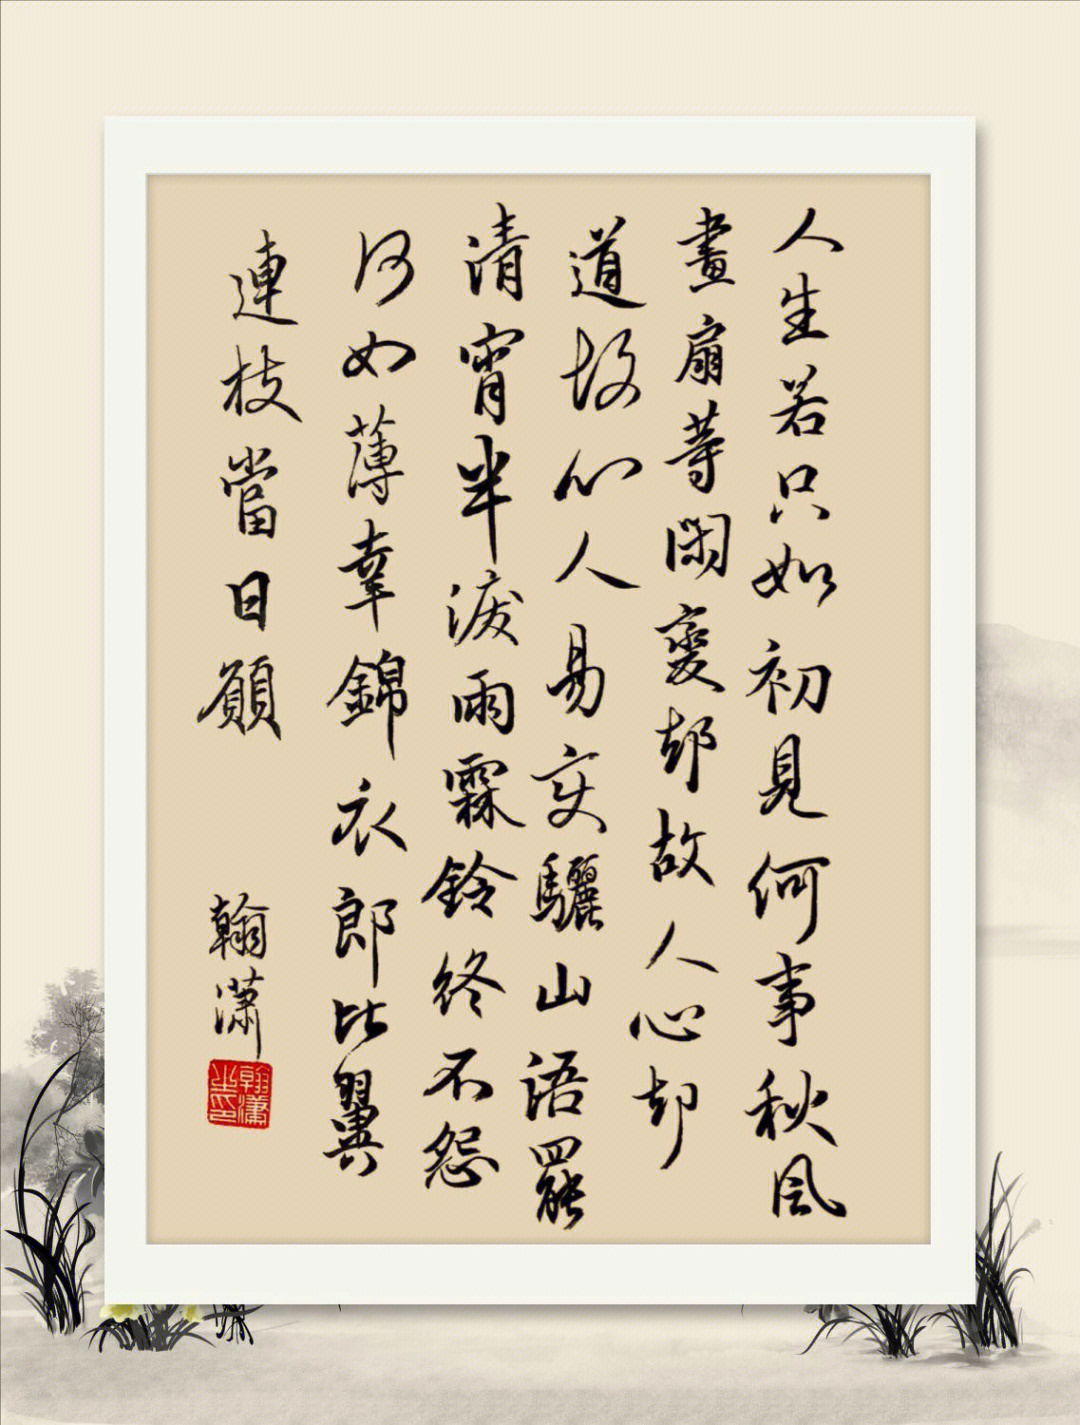 人生若只如初見何事秋風
畫扇等閑變却故人心却
道故心人易変驪山語罷
清宵半淚雨霖鈴終不怨
何如薄幸錦衣郎比翼
連枝當日願
翰瀟
翰瀟之印